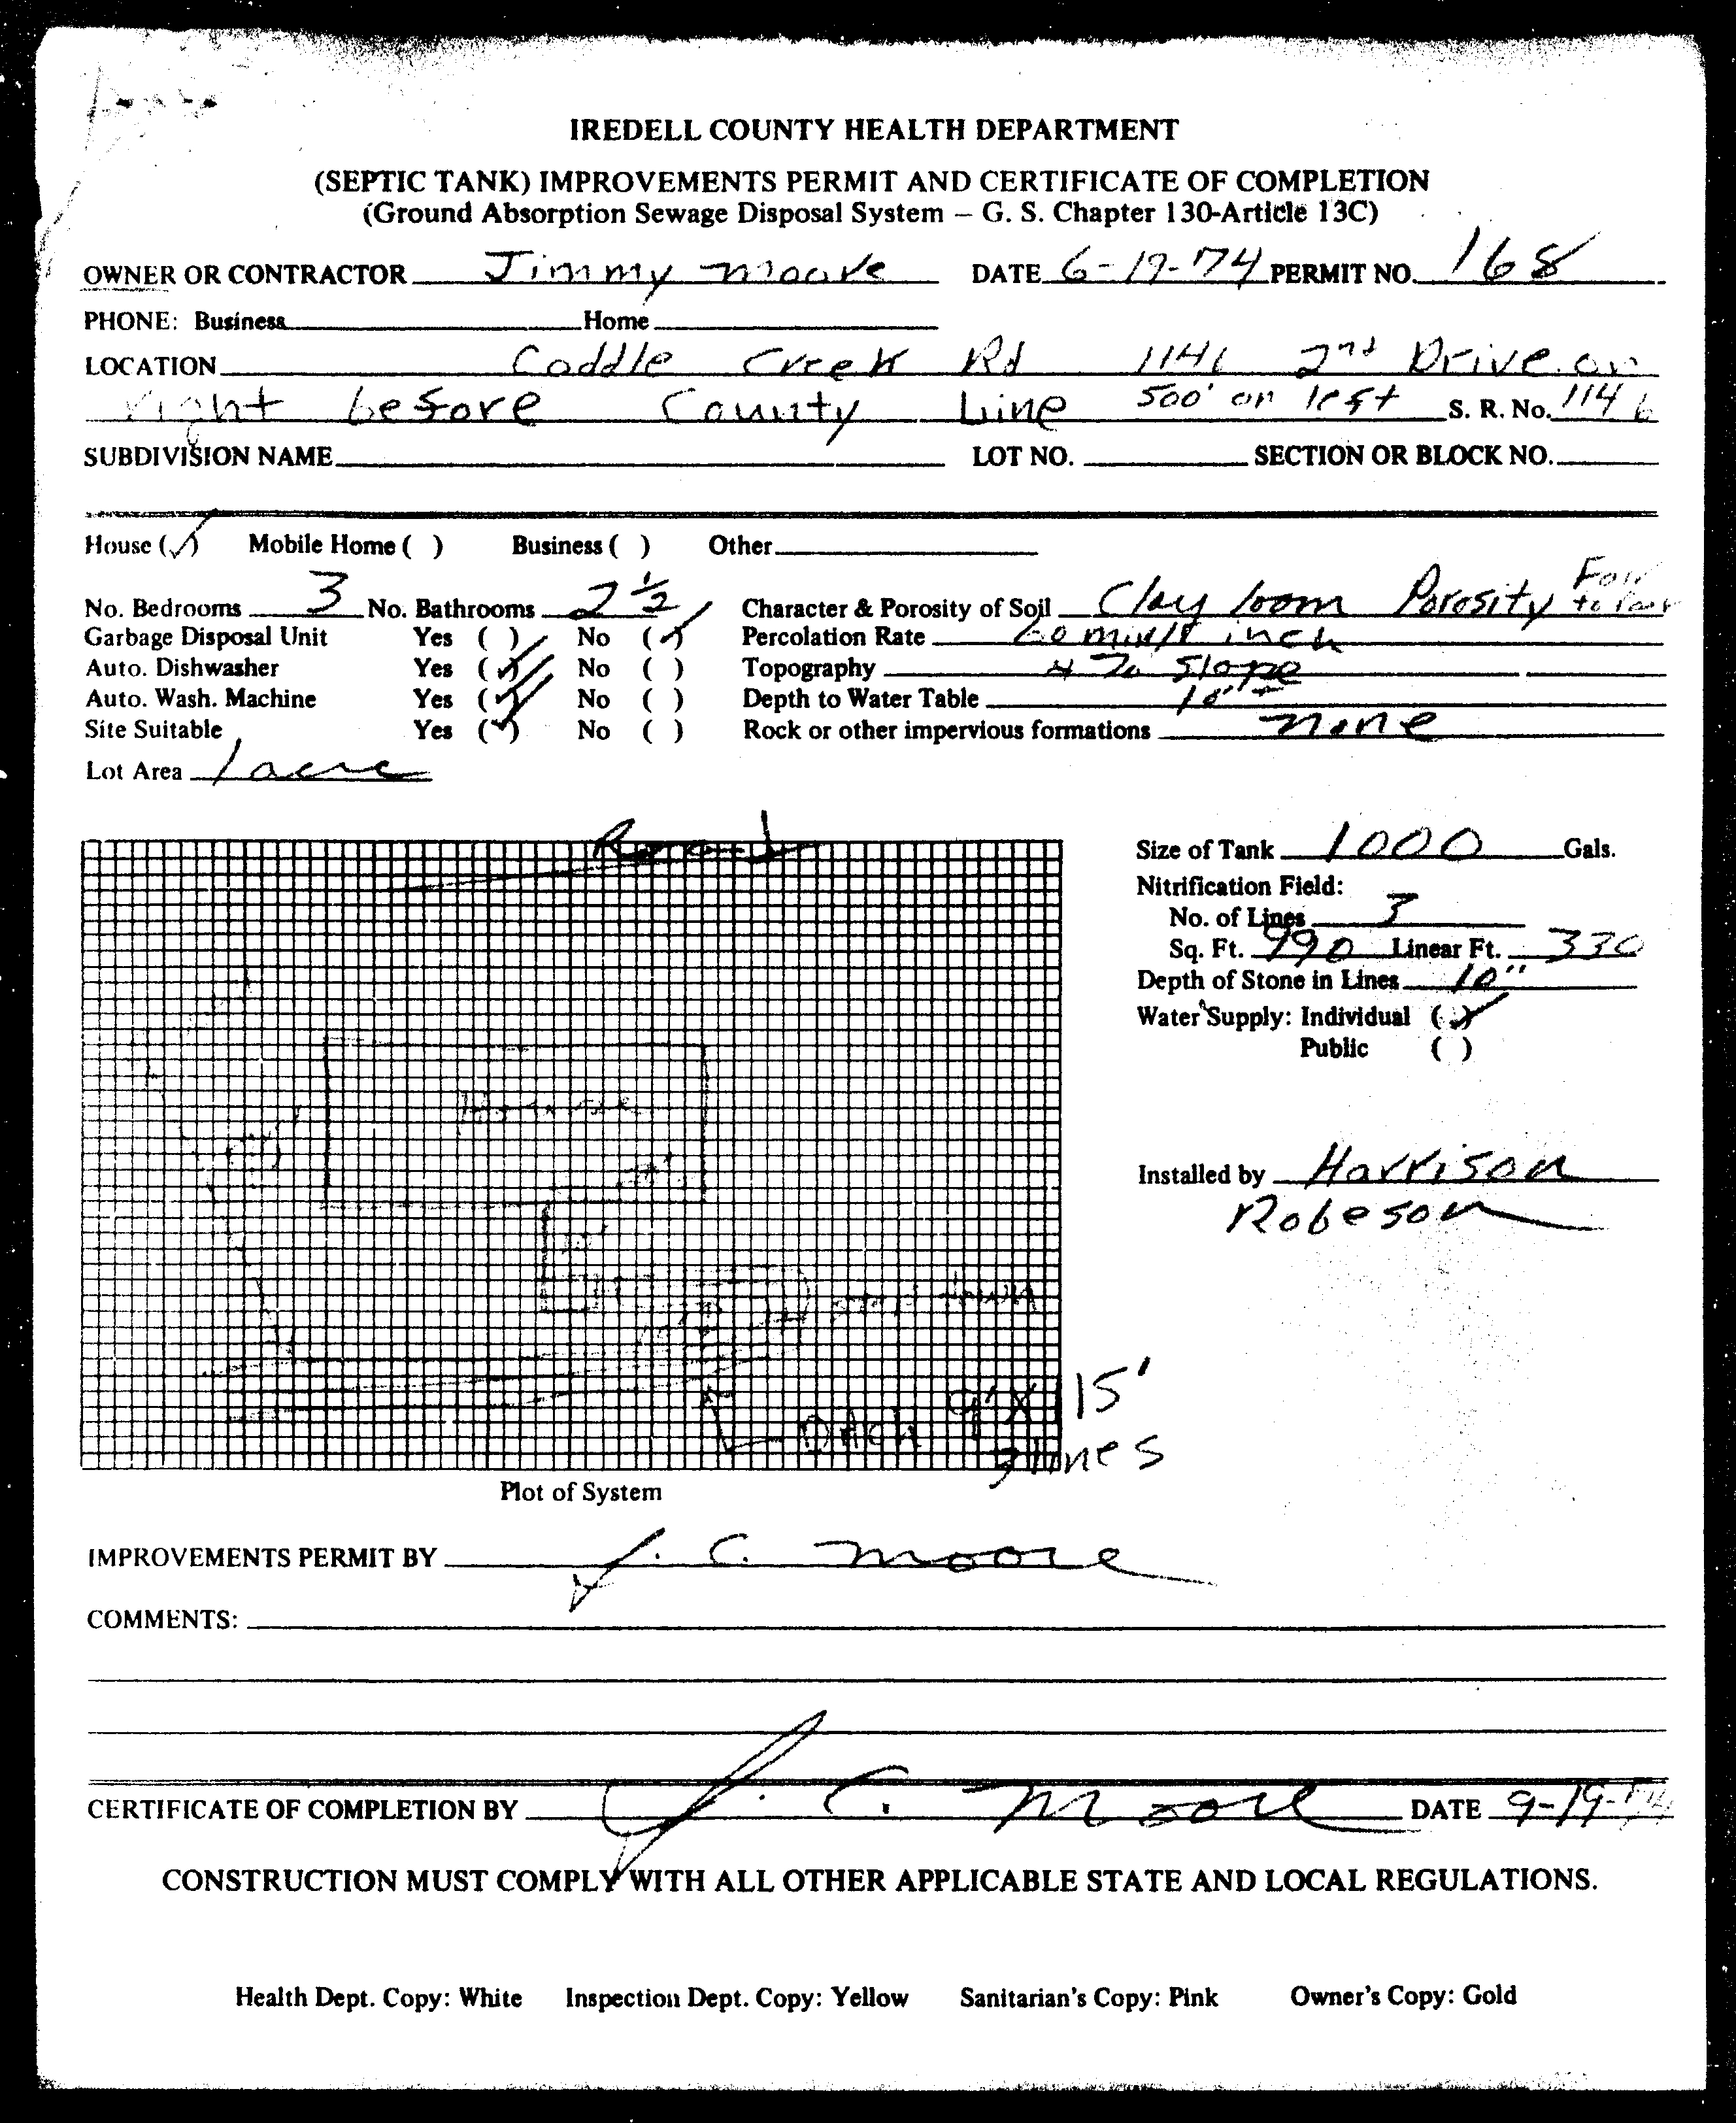 IREDELL COUNTY HEALTH DEPARTMENT
(SEPTIC TANK) IMPROVEMENTS PERMIT AND CERTIFICATE OF COMPLETION
(Ground Absorption Sewage Disposal System – G. S. Chapter 130-Article 13C)
OWNER OR CONTRACTOR Jimmy Moore DATE 6-19-74 PERMIT NO. 168
PHONE: Business Home
LOCATION Coddle Creek Rd 1146 2nd Drive on
right before County Line 500' on left S. R. No. 1146
SUBDIVISION NAME LOT NO. SECTION OR BLOCK NO.
House (✓) Mobile Home ( ) Business ( ) Other
No. Bedrooms 3 No. Bathrooms 2 ½ Character & Porosity of Soil Clay loom Porosity Fair to Poor
Garbage Disposal Unit Yes ( ) No (✓) Percolation Rate 60 min/1 inch
Auto. Dishwasher Yes (✓) No ( ) Topography 4 % Slope
Auto. Wash. Machine Yes (✓) No ( ) Depth to Water Table 10'
Site Suitable Yes (✓) No ( ) Rock or other impervious formations none
Lot Area 1 acre
Road
Size of Tank 1000 Gals.
Nitrification Field:
No. of Lines 3
Sq. Ft. 990 Linear Ft. 330
Depth of Stone in Lines 10"
Water Supply: Individual (✓)
Public ( )
House
Installed by Harrison
Robeson
Ditch 9' X 15'
3 lines
Plot of System
IMPROVEMENTS PERMIT BY J. C. Moore
COMMENTS:
CERTIFICATE OF COMPLETION BY J. C. Moore DATE 9-19-74
CONSTRUCTION MUST COMPLY WITH ALL OTHER APPLICABLE STATE AND LOCAL REGULATIONS.
Health Dept. Copy: White Inspection Dept. Copy: Yellow Sanitarian's Copy: Pink Owner's Copy: Gold